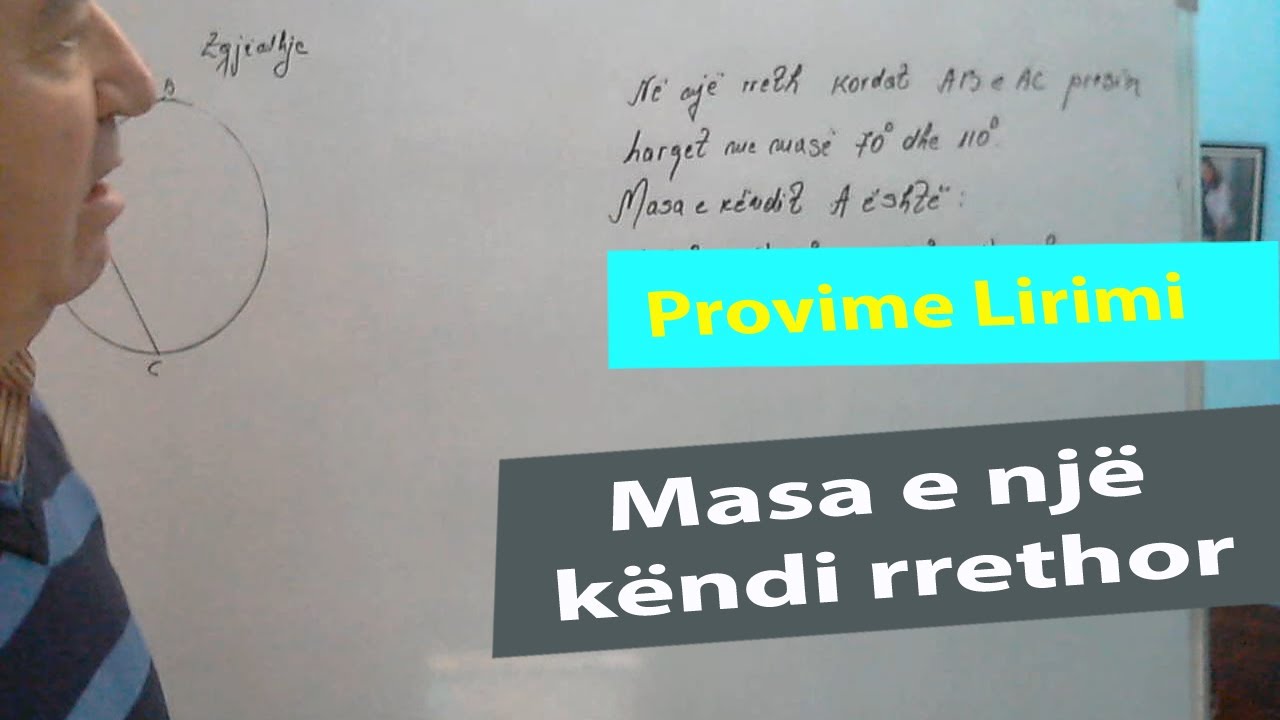 Zgjedhje
B
Në një rreth kordat AB e AC presin
harqet me masë 70° dhe 110°.
Masa e këndit A është:
C
Provime Lirimi
Masa e një
këndi rrethor